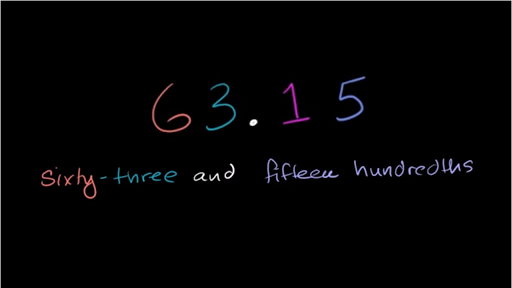 63.15
sixty-three and fifteen hundredths